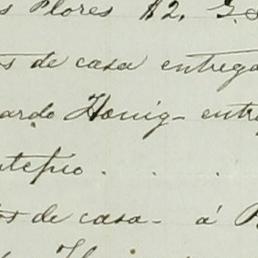 s Flores № 2. G. S
s de casa entrega
ardo Honig - entre
ntepio . . .
os de casa - á P